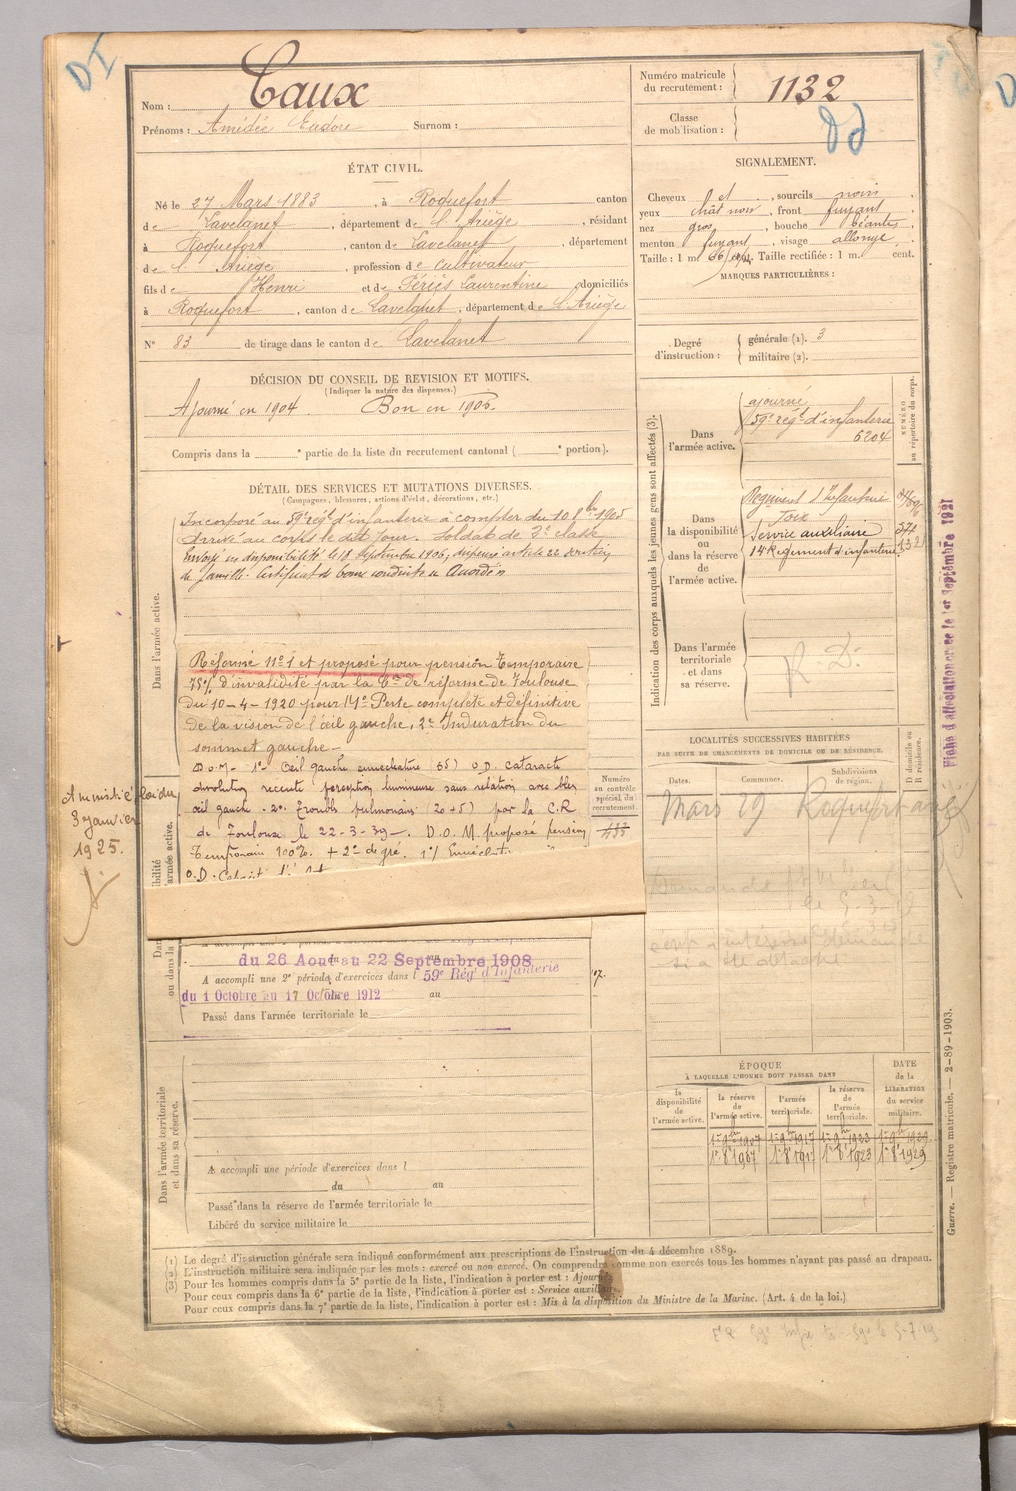 DI
Nom : Caux
Prénoms : Amédée Eudore Surnom :
Numéro matricule du recrutement : 1132
Classe de mobilisation :
ÉTAT CIVIL.
Né le 27 Mars 1883, à Roquefort canton
de Lavelanet, département de l'Ariège, résidant
à Roquefort, canton de Lavelanet, département
de l'Ariège, profession de cultivateur
fils de Henri et de Périès Laurentine domiciliés
à Roquefort, canton de Lavelanet, département de l'Ariège
N° 83 de tirage dans le canton de Lavelanet
SIGNALEMENT.
Cheveux et, sourcils noirs
yeux chât noir, front fuyant
nez gros, bouche béante,
menton fuyant, visage allongé.
Taille : 1 m. 66 cent. Taille rectifiée : 1 m. cent.
MARQUES PARTICULIÈRES :
Degré d'instruction : générale (1). 3
militaire (2).
DÉCISION DU CONSEIL DE REVISION ET MOTIFS.
(Indiquer la nature des dispenses.)
Ajourné en 1904. Bon en 1905.
Compris dans la e partie de la liste du recrutement cantonal ( e portion).
DÉTAIL DES SERVICES ET MUTATIONS DIVERSES.
(Campagnes, blessures, actions d'éclat, décorations, etc.)
Dans l'armée active.
Incorporé au 59e régt d'infanterie à compter du 10 8bre 1905
Arrivé au corps le dit jour. Soldat de 2e classe
Envoyé en disponibilité le 18 Septembre 1906, dispensé article 22 soutien
de famille. Certificat de bonne conduite "Accordé"
Réformé n° 1 et proposé pour pension temporaire
75% d'invalidité par la Con de réforme de Toulouse
du 10-4-1920 pour 1° Perte complète et définitive
de la vision de l'œil gauche, 2° Induration du
sommet gauche-
D.O.M- 1° Œil gauche énucléation (65) O.D. cataracte
évolution récente perception lumineuse sans relation avec bles
œil gauche - 2° Troubles pulmonaires (20+5) par la C.R
de Toulouse le 22-3-39-. D.O.M. proposé pension
Temporaire 100%. + 2e degré. 1°/
O.D.
Amnistié loi du
3 janvier
1925.
Numéro au contrôle spécial du recrutement.
433
du 26 Aou au 22 Septembre 1908
A accompli une 2e période d'exercices dans l 59e Rég d'Infanterie
du 1 Octobre au 17 Octobre 1912 au
Passé dans l'armée territoriale le
Dans l'armée territoriale et dans sa réserve.
A accompli une période d'exercices dans l
du au
Passé dans la réserve de l'armée territoriale le
Libéré du service militaire le
Indication des corps auxquels les jeunes gens sont affectés (3).
NUMÉRO au répertoire du corps.
Dans l'armée active.
ajourné
59e régt d'infanterie
6204
Dans la disponibilité ou dans la réserve de l'armée active.
Régiment d'Infanterie
Foix
Service auxiliaire
14e Régiment d'infanterie
Dans l'armée territoriale et dans sa réserve.
R. D.
LOCALITÉS SUCCESSIVES HABITÉES
PAR SUITE DE CHANGEMENTS DE DOMICILE OU DE RÉSIDENCE.
Dates. Communes. Subdivisions de région. D domicile ou R résidence.
Mars 29 Roquefort
ÉPOQUE
À LAQUELLE L'HOMME DOIT PASSER DANS
DATE de la LIBÉRATION du service militaire.
la disponibilité de l'armée active.
la réserve de l'armée active.
l'armée territoriale.
la réserve de l'armée territoriale.
1er 9bre 1907 1er 9bre 1917 1er 9bre 1923 1er 9bre 1929
1er 8 1907 1er 8 1917 1er 8 1923 1er 8 1929
(1) Le degré d'instruction générale sera indiqué conformément aux prescriptions de l'instruction du 4 décembre 1889.
(2) L'instruction militaire sera indiquée par les mots : exercé ou non exercé. On comprendra comme non exercés tous les hommes n'ayant pas passé au drapeau.
(3) Pour les hommes compris dans la 5e partie de la liste, l'indication à porter est : Ajourné.
Pour ceux compris dans la 6e partie de la liste, l'indication à porter est : Service auxiliaire.
Pour ceux compris dans la 7e partie de la liste, l'indication à porter est : Mis à la disposition du Ministre de la Marine. (Art. 4 de la loi.)
Fiche d'attestation créée le 1er Septembre 1921
Guerre. — Registre matricule. — 2-89-1903.